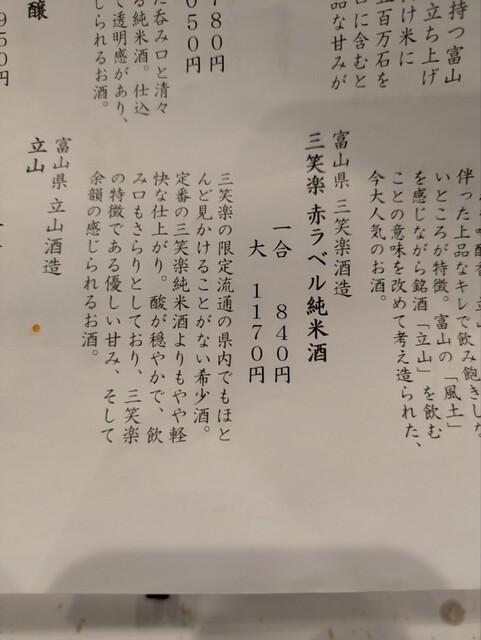 持つ富山
立ち上げ
け米に
五百万石を
口に含むと
品な甘みが
780円
050円
た呑み口と清々
る純米酒。仕込
て透明感があり、
じられるお酒。
醸
950円
伴った上品なキレで飲み飽きしな
いところが特徴。富山の「風土」
を感じながら銘酒「立山」を飲む
ことの意味を改めて考え造られた、
今大人気のお酒。
富山県 三笑楽酒造
三笑楽 赤ラベル純米酒
一合 840円
大 1170円
三笑楽の限定流通の県内でもほと
んど見かけることがない希少酒。
定番の三笑楽純米酒よりもやや軽
快な仕上がり。酸が穏やかで、飲
み口もさらりとしており、三笑楽
の特徴である優しい甘み、そして
余韻の感じられるお酒。
富山県 立山酒造
立山